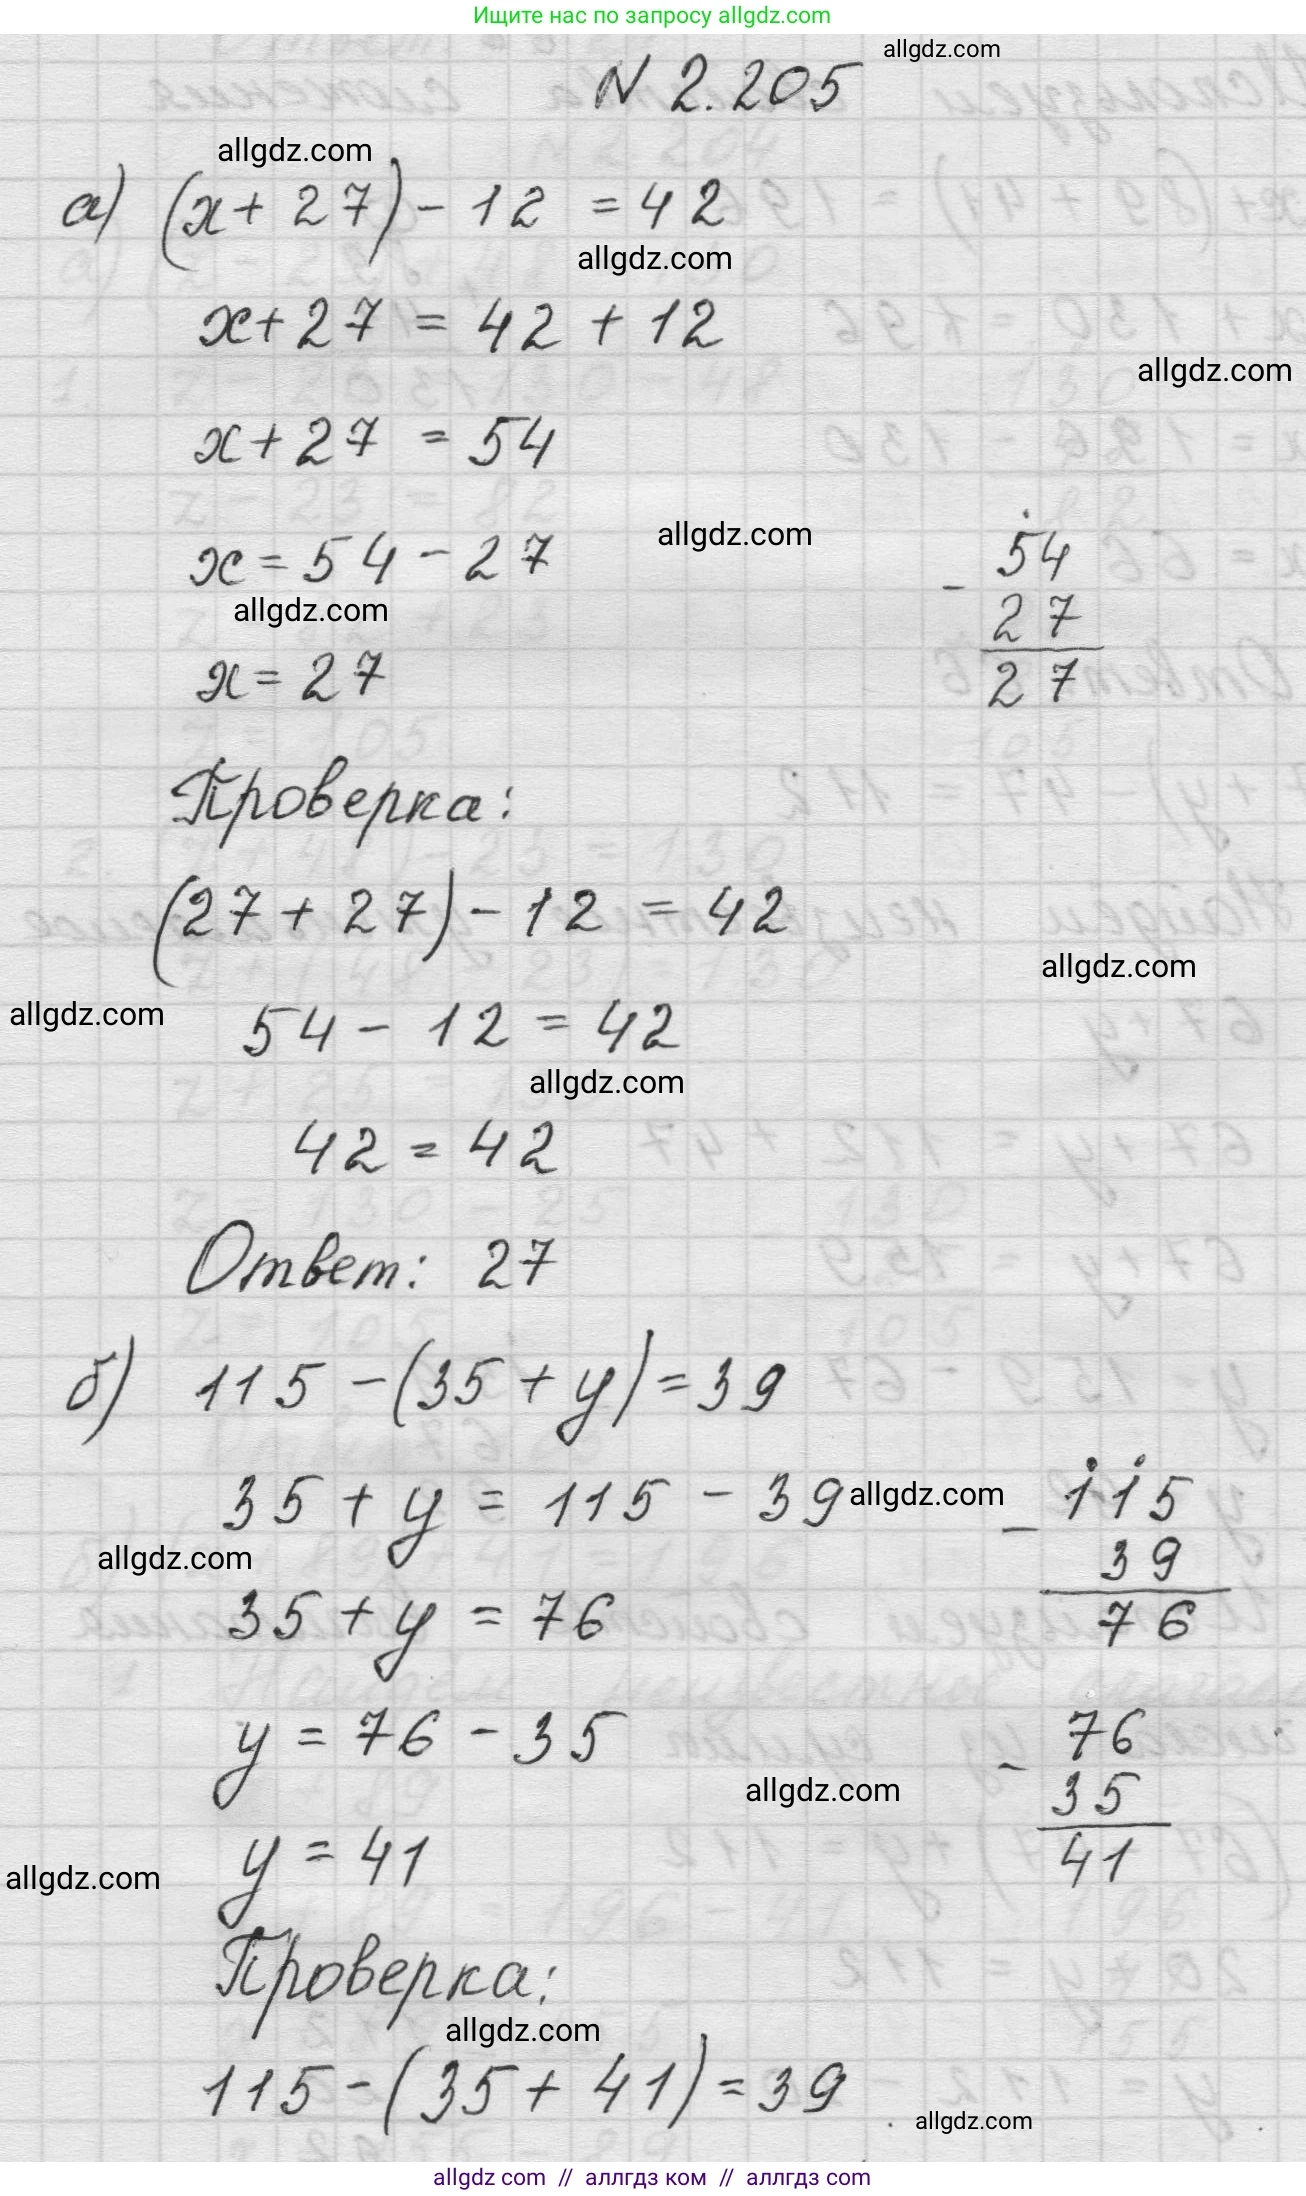 Ищите нас по запросу allgdz.com
allgdz.com
N 2.205
allgdz.com
а) (x + 27) - 12 = 42
allgdz.com
x + 27 = 42 + 12
allgdz.com
x + 27 = 54
allgdz.com
x = 54 - 27
54
- 27
27
allgdz.com
x = 27
Проверка:
(27 + 27) - 12 = 42
allgdz.com
allgdz.com
54 - 12 = 42
allgdz.com
42 = 42
Ответ: 27
б) 115 - (35 + y) = 39
35 + y = 115 - 39
allgdz.com
115
- 39
76
allgdz.com
35 + y = 76
y = 76 - 35
76
- 35
41
allgdz.com
y = 41
allgdz.com
Проверка:
allgdz.com
115 - (35 + 41) = 39
allgdz.com
allgdz com // аллгдз ком // аллгдз com